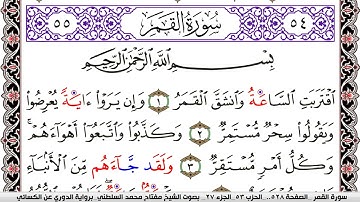 ٥٥ سُورَةُ القَمَرِ ٥٤
بِسْمِ اللَّهِ الرَّحْمَٰنِ الرَّحِيمِ
اقْتَرَبَتِ السَّاعَةُ وَانشَقَّ الْقَمَرُ ١ وَإِن يَرَوْا ءَايَةً يُعْرِضُوا
وَيَقُولُوا سِحْرٌ مُّسْتَمِرٌّ ٢ وَكَذَّبُوا وَاتَّبَعُوا أَهْوَاءَهُمْ
وَكُلُّ أَمْرٍ مُّسْتَقِرٌّ ٣ وَلَقَدْ جَاءَهُم مِّنَ الْأَنبَاءِ
سورة القمر .. الصفحة ٥٢٨ .. الحزب ٥٣ .. الجزء ٢٧ بصوت الشيخ مفتاح محمد السلطني برواية الدوري عن الكسائي